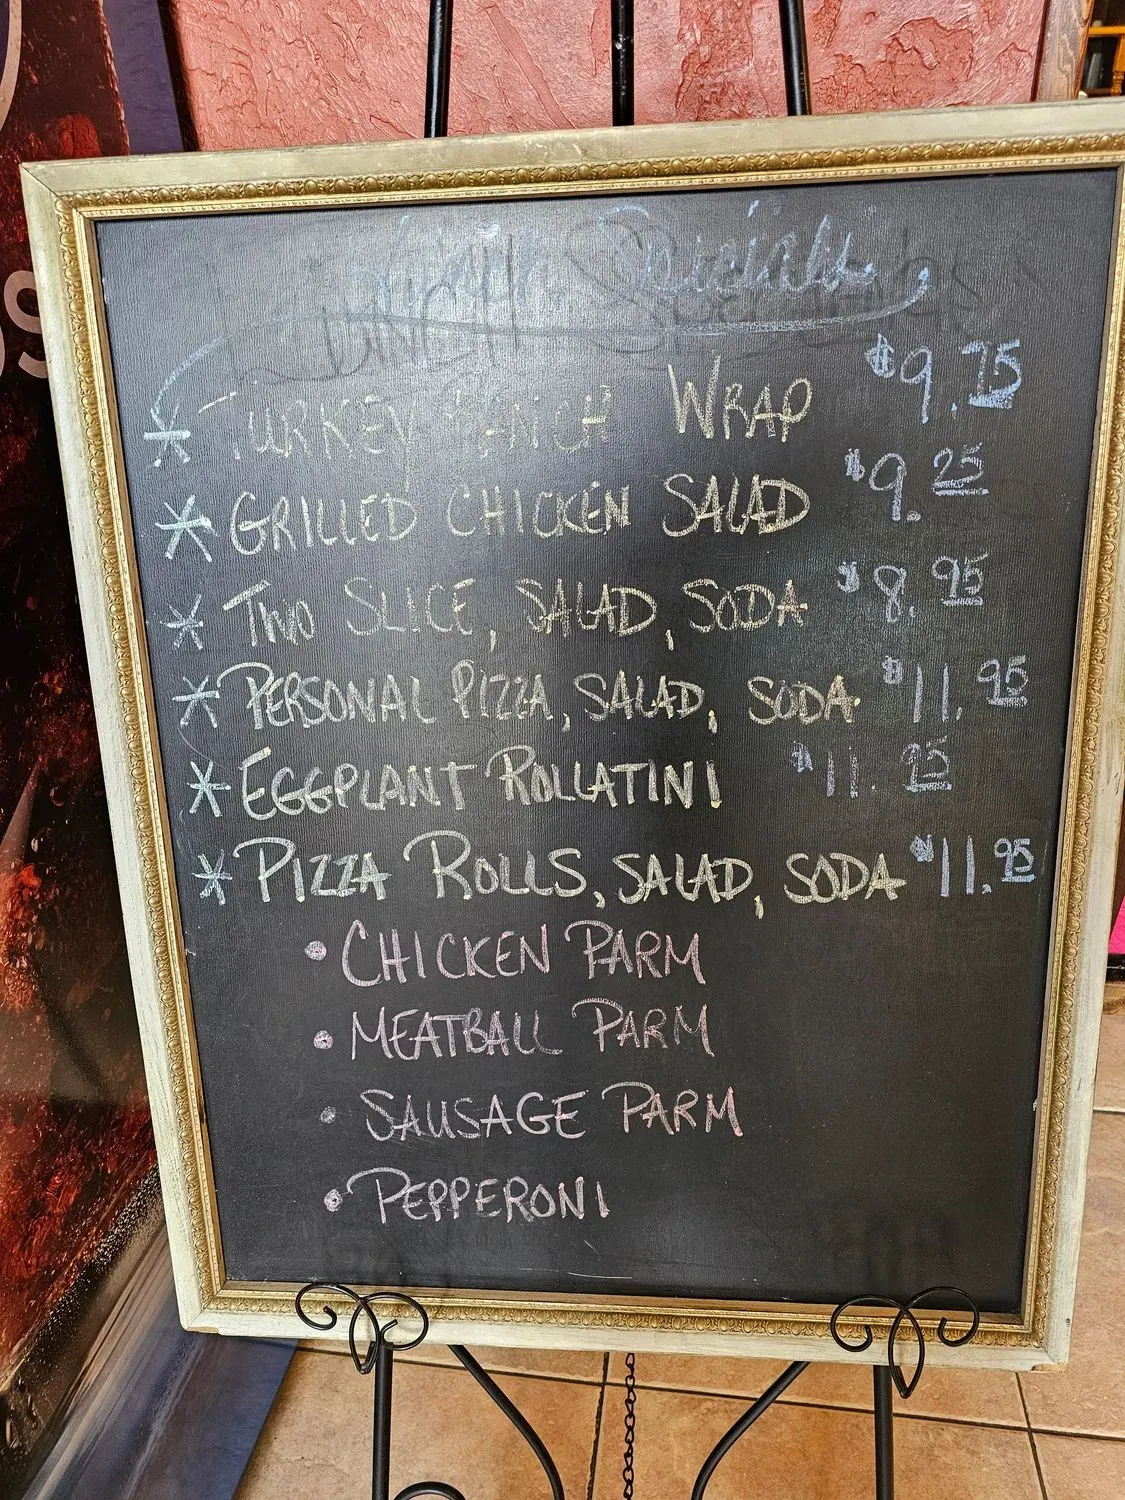 Lunch Specials
* TURKEY RANCH WRAP $9.75
* GRILLED CHICKEN SALAD $9.25
* TWO SLICE, SALAD, SODA $8.95
* PERSONAL PIZZA, SALAD, SODA $11.95
* EGGPLANT ROLLATINI $11.25
* PIZZA ROLLS, SALAD, SODA $11.95
• CHICKEN PARM
• MEATBALL PARM
• SAUSAGE PARM
• PEPPERONI